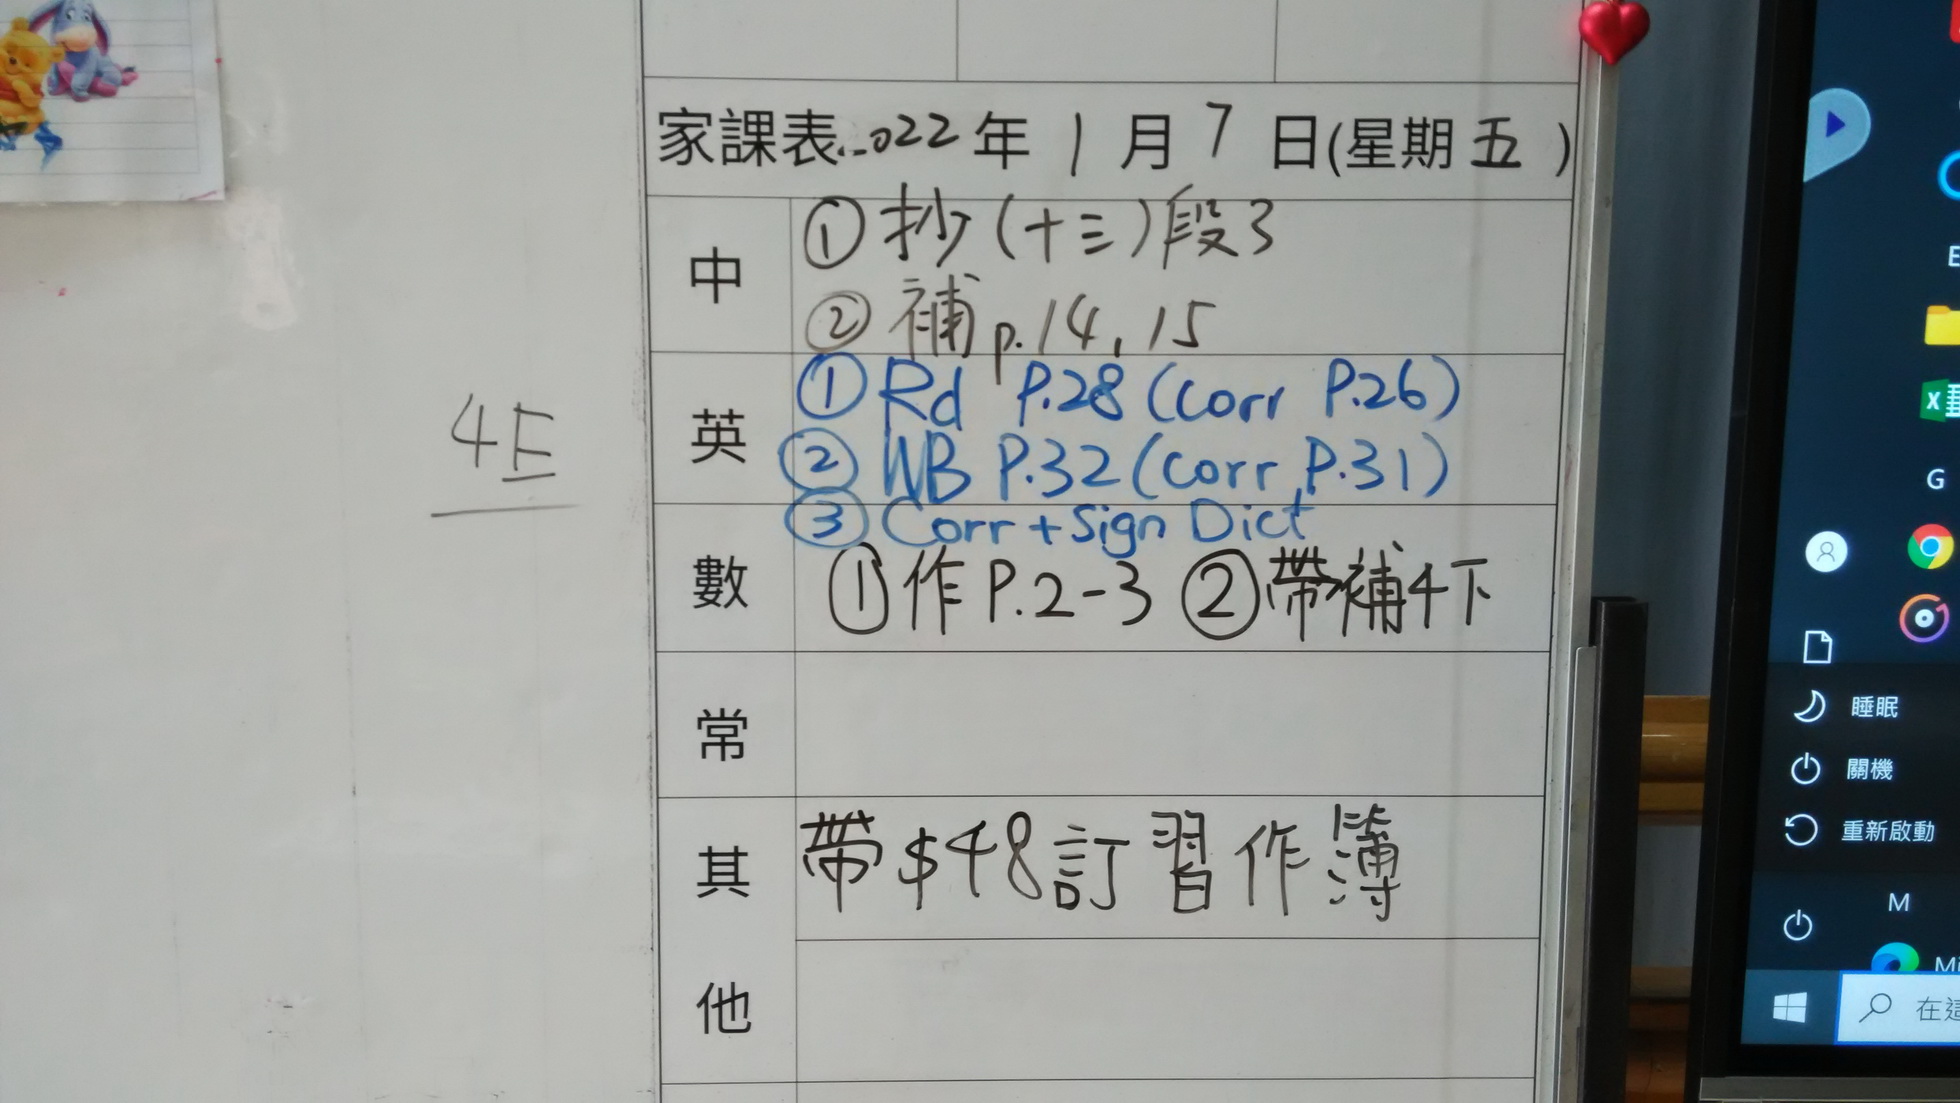 家課表2022年1月7日(星期五)
中
①抄(十三)段3
②補p.14,15
英
①Rd P.28(Corr P.26)
②WB P.32(Corr P.31)
③Corr+Sign Dict
數
①作P.2-3 ②帶補4下
常
其他
帶$48訂習作簿
4E
E
G
睡眠
關機
重新啟動
M
在這